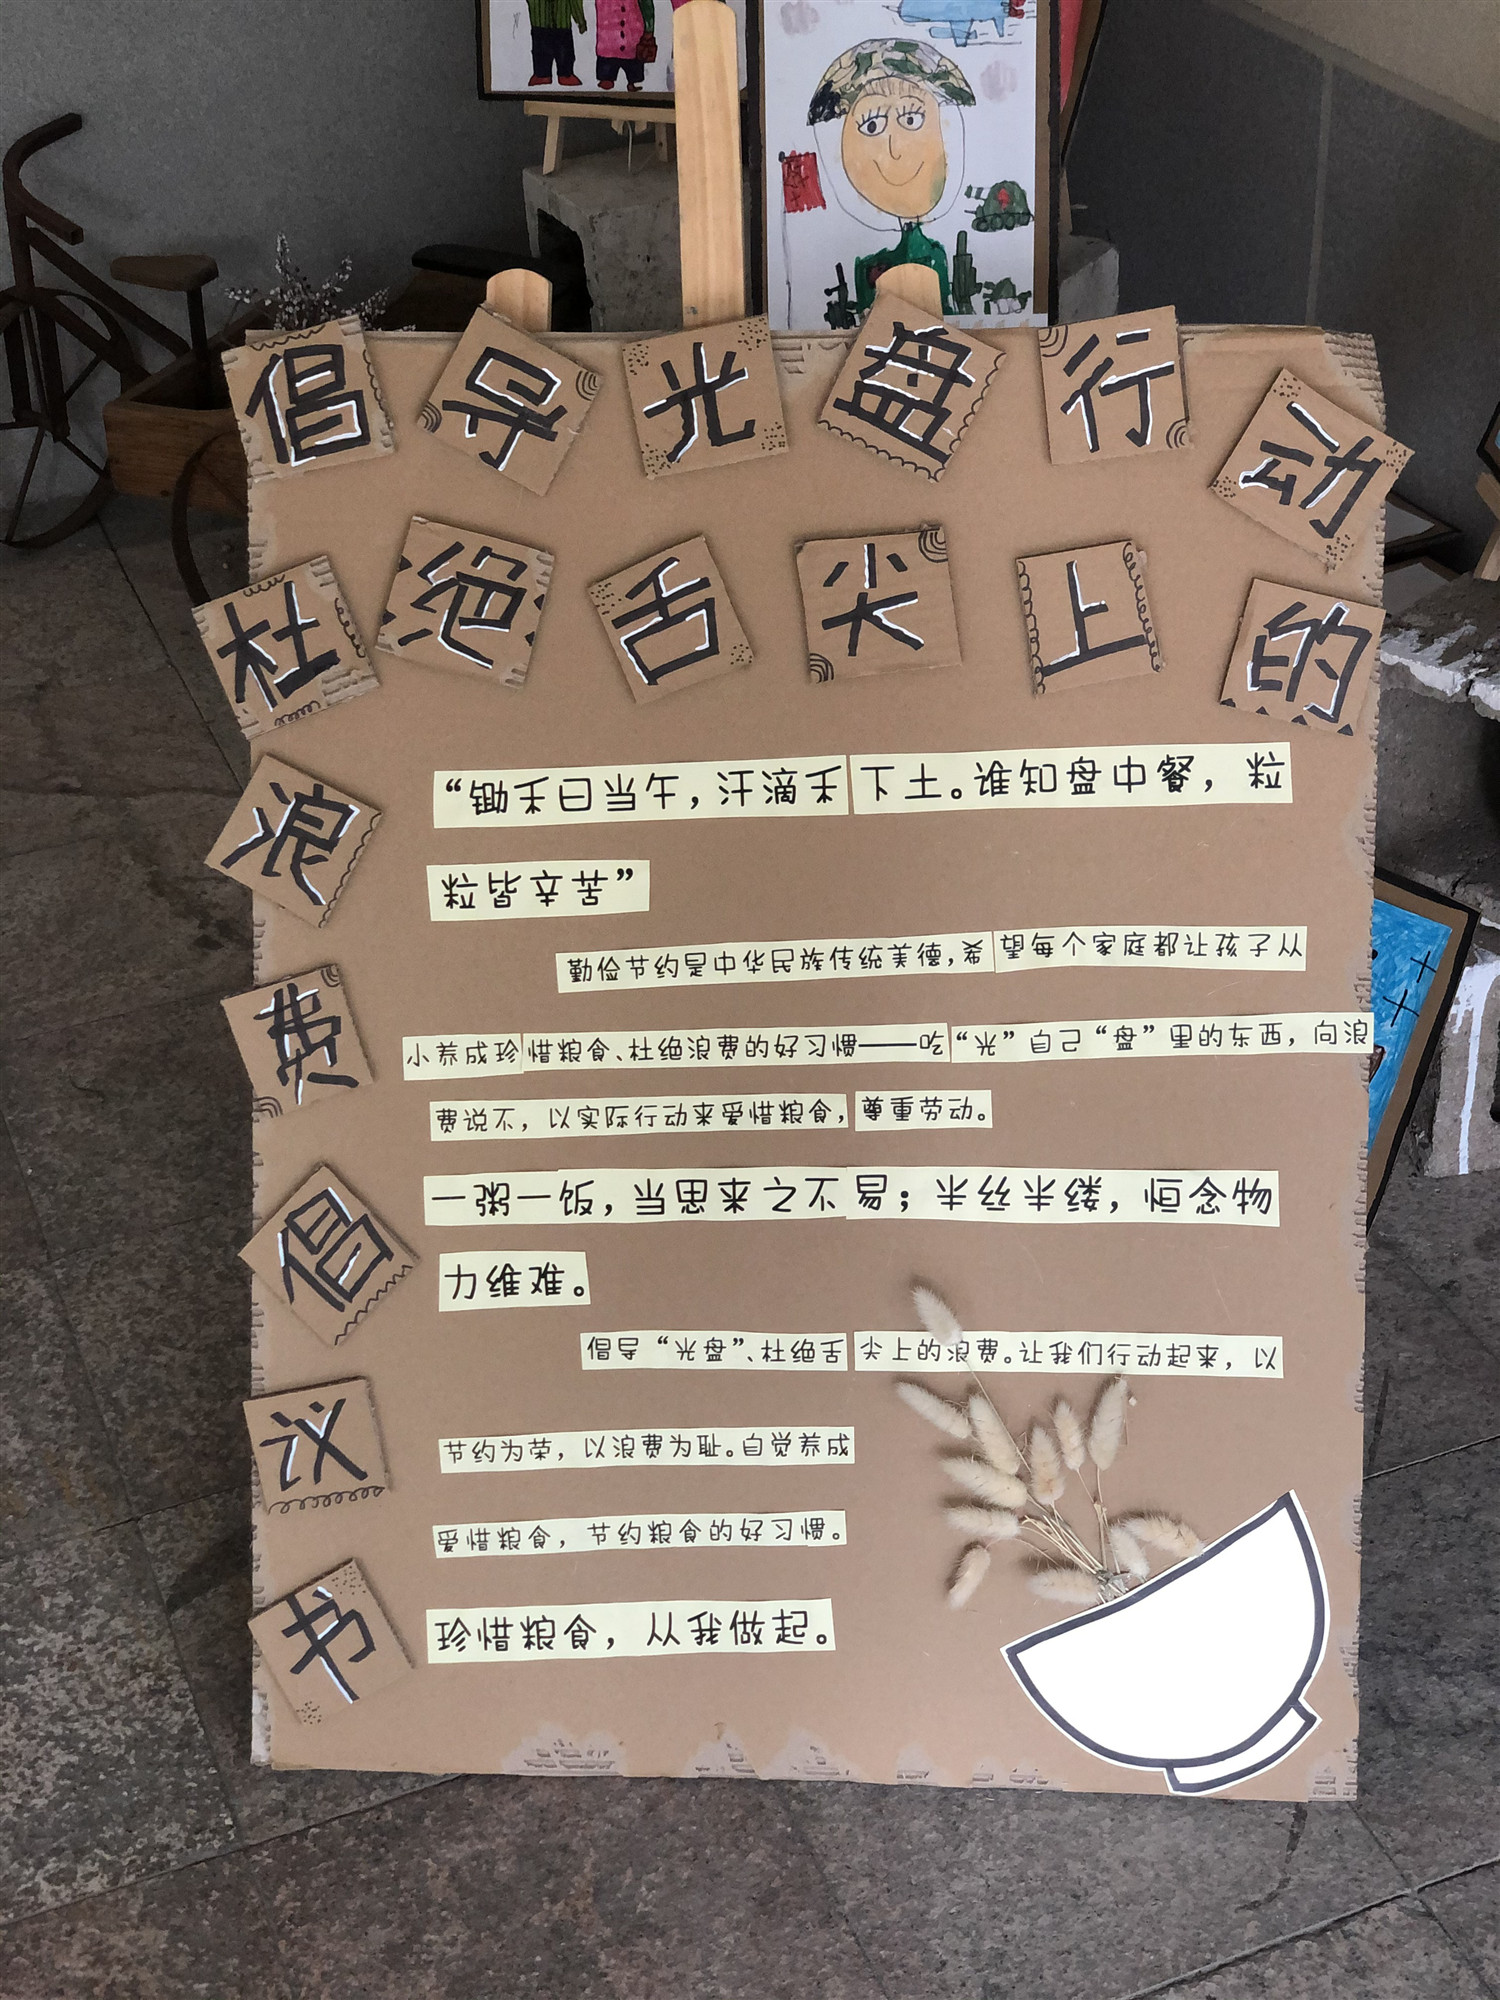 倡导光盘行动
杜绝舌尖上的
浪费倡议书
“锄禾日当午，汗滴禾下土。谁知盘中餐，粒
粒皆辛苦”
勤俭节约是中华民族传统美德，希望每个家庭都让孩子从
小养成珍惜粮食、杜绝浪费的好习惯——吃“光”自己“盘”里的东西，向浪
费说不，以实际行动来爱惜粮食，尊重劳动。
一粥一饭，当思来之不易；半丝半缕，恒念物
力维难。
倡导“光盘”、杜绝舌尖上的浪费。让我们行动起来，以
节约为荣，以浪费为耻。自觉养成
爱惜粮食，节约粮食的好习惯。
珍惜粮食，从我做起。